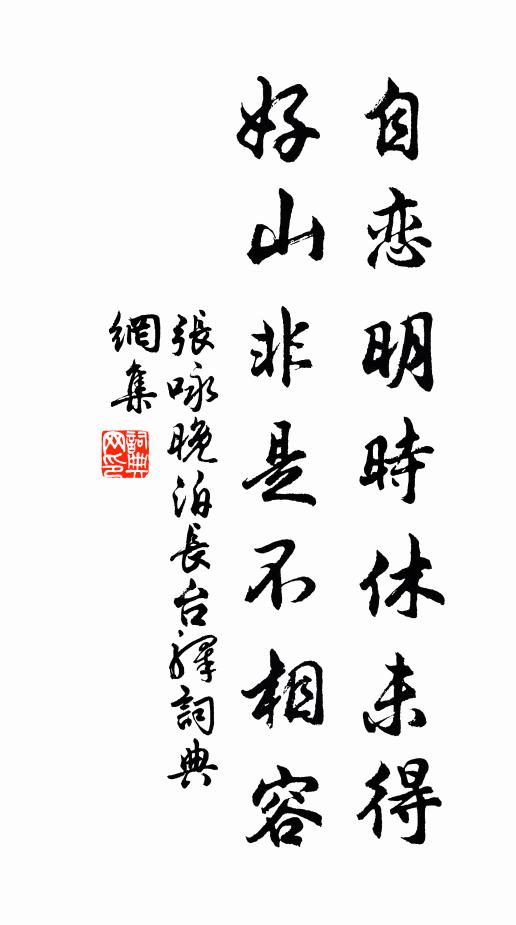 自恋明時休未得
好山非是不相容
張咏晚泊長台驛詞典
網集
詞典
网印